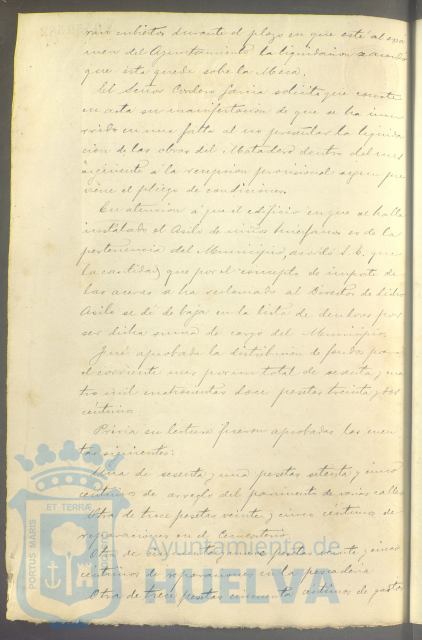 cubiertos durante el plazo en que esté al exa
men del Ayuntamiento la liquidación
que ésta quede sobre la Mesa.
El Señor Cordero García solicita que conste
en acta su manifestación de que se ha incu
rrido en una falta al no presentar la liquida
ción de las obras del Matadero dentro del mes
siguiente á la recepción provisional según pre
viene el pliego de condiciones.
En atención á que el edificio en que se halla
instalado el Asilo de niños huérfanos es de la
pertenencia del Municipio, acordó S. E. que
la cantidad que por el concepto de importe de
las aceras se ha reclamado al Director de dicho
Asilo se dé de baja en la lista de deudores por
ser dicha suma de cargo del Municipio.
Fué aprobada la distribución de fondos para
el corriente mes por un total de sesenta y cua
tro mil cuatrocientas doce pesetas treinta y dos
céntimos.
Prévia su lectura fueron aprobadas las cuen
tas siguientes:
Una de sesenta y una pesetas setenta y cinco
céntimos de arreglo del pavimento de varias calles
Otra de trece pesetas veinte y cinco céntimos de
reparaciones en el Cementerio.
Otra de pesetas veinte y cinco
céntimos de reparaciones en la pescadería
Otra de trece pesetas cincuenta céntimos de gastos
PORTUS MARIS
ET TERRAE
Ayuntamiento de
HUELVA